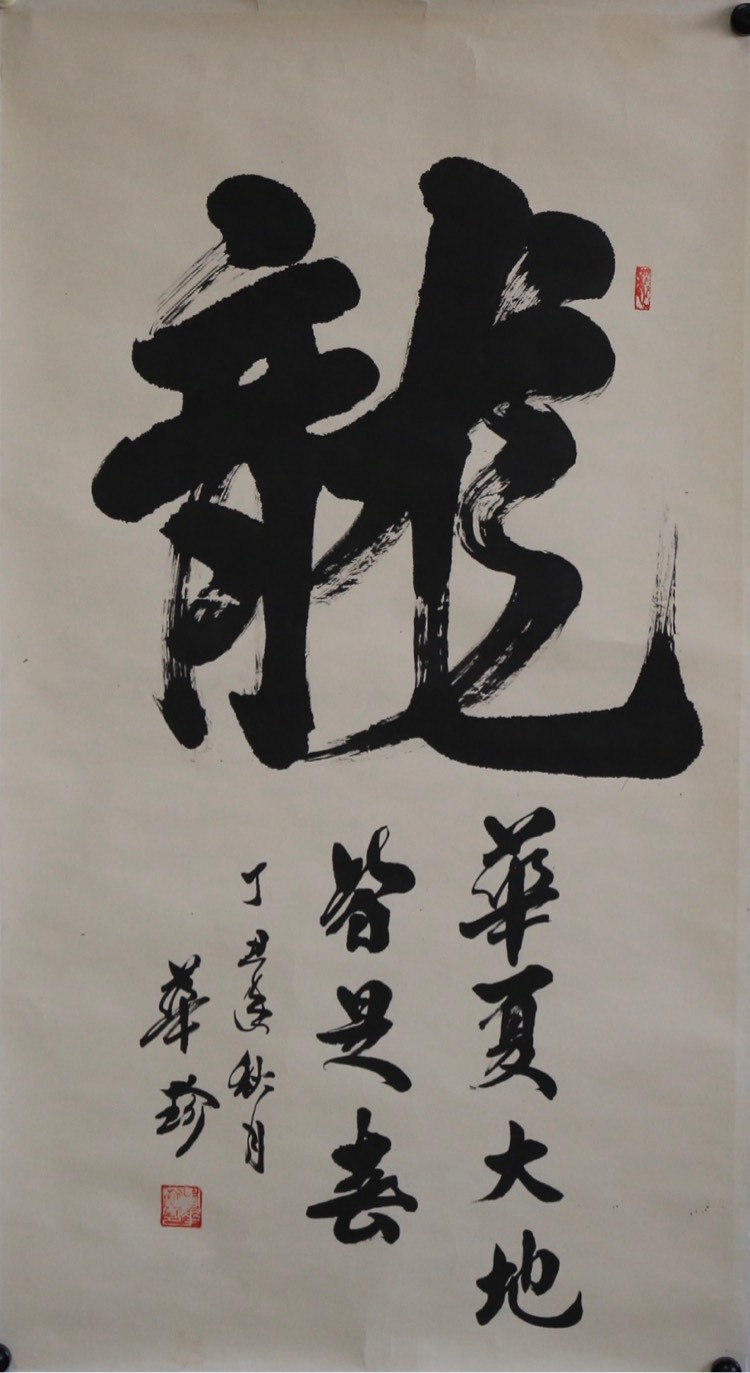 龍
華夏大地
皆是春
丁丑年秋月
華珍